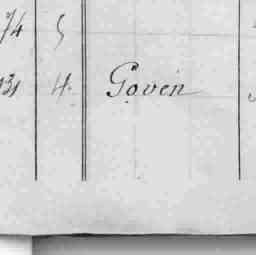 74 5
131 4. Goven